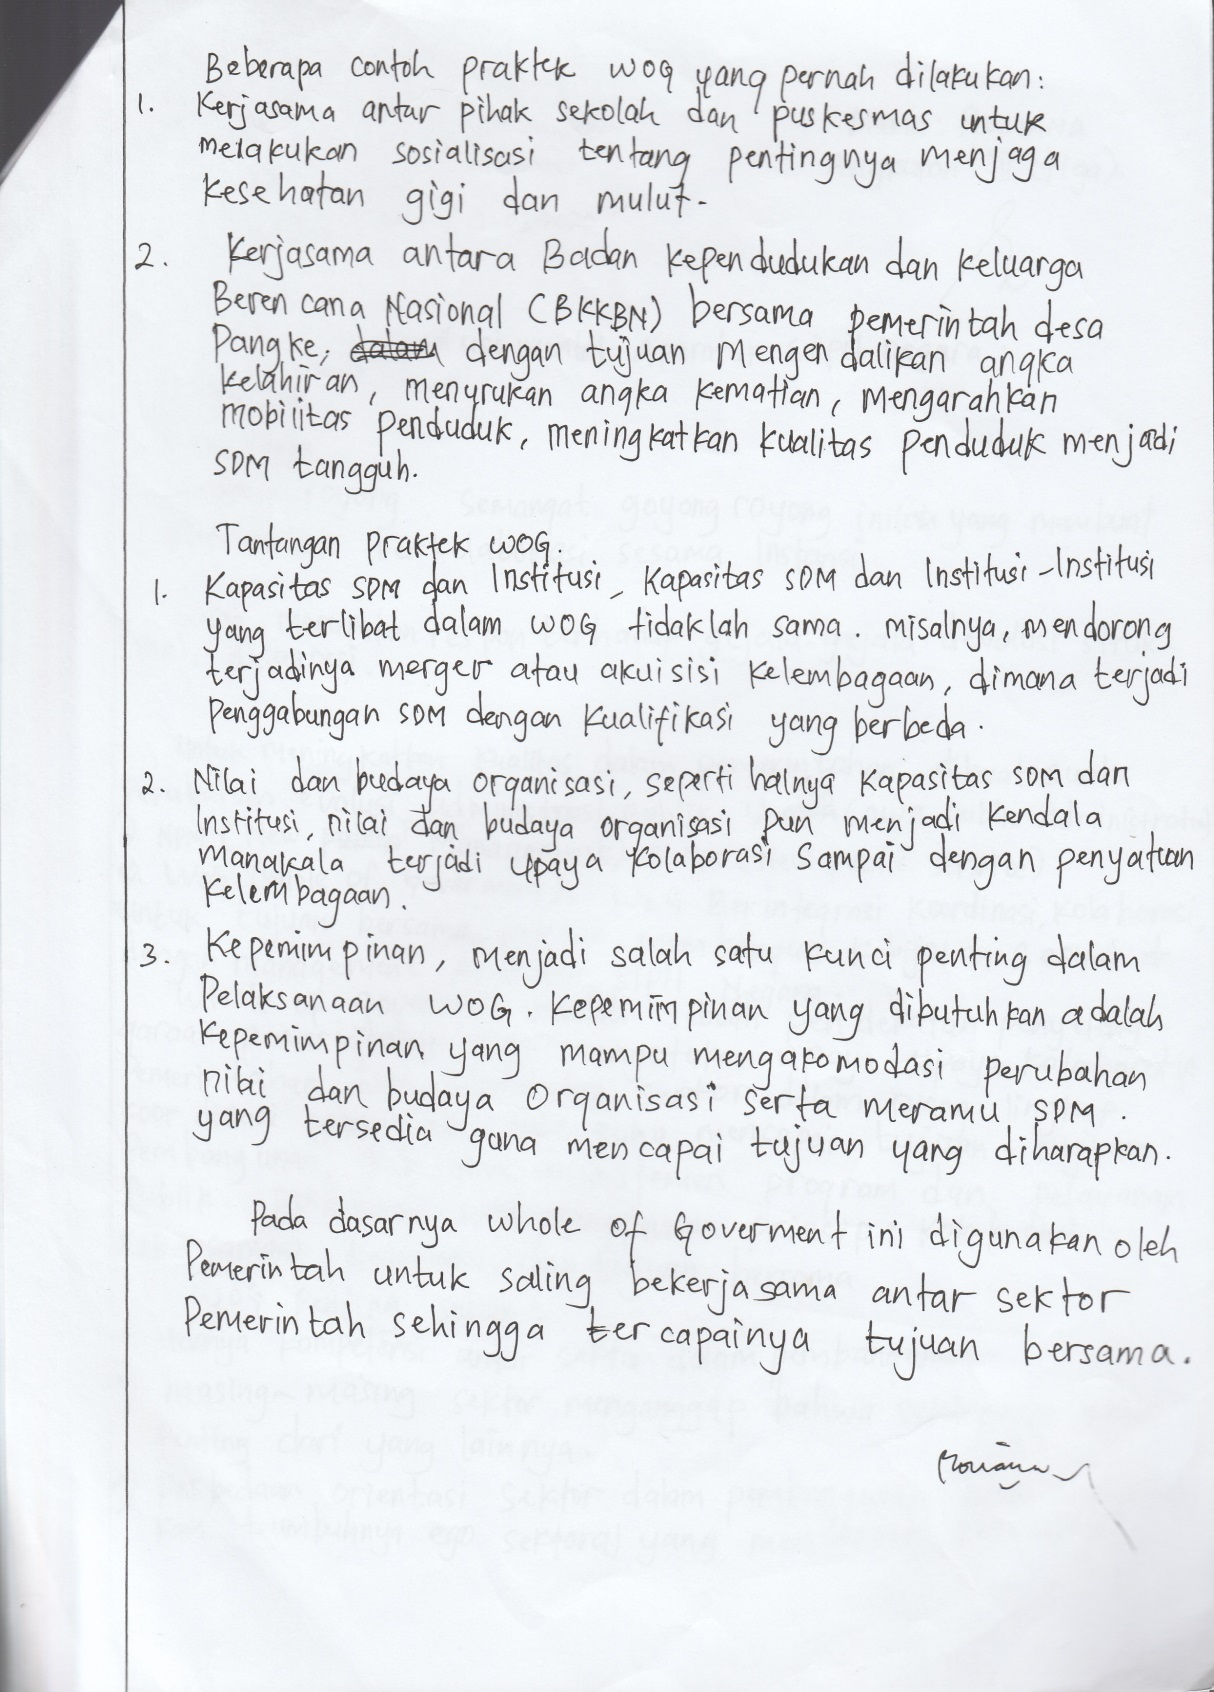 Beberapa contoh praktek WOG yang pernah dilakukan:
1. Kerjasama antar pihak sekolah dan puskesmas untuk
melakukan sosialisasi tentang pentingnya menjaga
kesehatan gigi dan mulut.
2. Kerjasama antara Badan kependudukan dan keluarga
Berencana Nasional (BKKBN) bersama pemerintah desa
Pangke, dalam dengan tujuan mengendalikan angka
kelahiran, menurukan angka kematian, mengarahkan
mobilitas penduduk, meningkatkan kualitas penduduk menjadi
SDM tangguh.
Tantangan praktek WOG.
1. Kapasitas SDM dan Institusi, Kapasitas SDM dan Institusi-Institusi
yang terlibat dalam WOG tidaklah sama. misalnya, mendorong
terjadinya merger atau akuisisi kelembagaan, dimana terjadi
penggabungan SDM dengan kualifikasi yang berbeda.
2. Nilai dan budaya organisasi, seperti halnya kapasitas SDM dan
Institusi, nilai dan budaya organisasi pun menjadi kendala
manakala terjadi upaya kolaborasi sampai dengan penyatuan
kelembagaan.
3. Kepemimpinan, menjadi salah satu kunci penting dalam
Pelaksanaan WOG. Kepemimpinan yang dibutuhkan adalah
kepemimpinan yang mampu mengakomodasi perubahan
nilai dan budaya organisasi serta meramu SDM.
yang tersedia guna mencapai tujuan yang diharapkan.
Pada dasarnya whole of Goverment ini digunakan oleh
Pemerintah untuk saling bekerjasama antar sektor
Pemerintah sehingga tercapainya tujuan bersama.